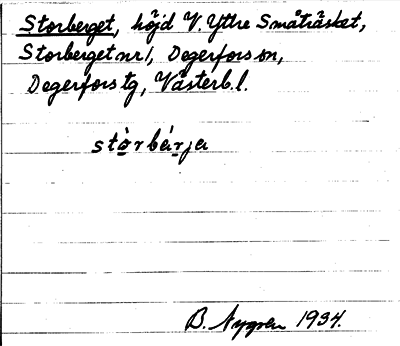 Storberget, höjd V. Yttre Småträsket,
Storberget nr 1, Degerfors sn,
Degerfors tg, Västerb. l.
stòrbárja
B. Nygren 1934.